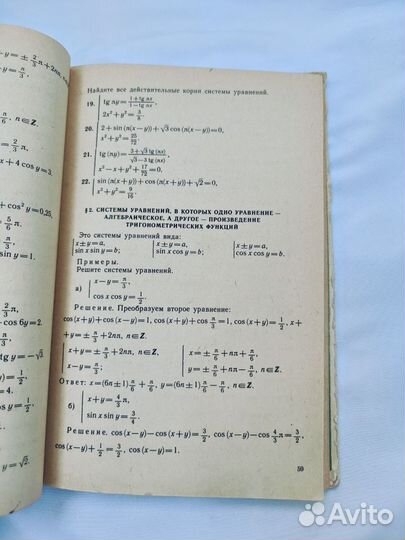 x−y=± 2/3 π+2πn,
−y= π/3,
Найдите все действительные корни системы уравнений.
19. { tg πy= (1+tg πx)/(1−tg πx),
2x²+y²= 2/3.
20. { 2+sin (π(x−y))+√3 cos (π(x−y))=0,
x²+y²= 25/72.
21. { tg (πy)= (3+√3 tg (πx))/(√3−3 tg (πx)),
x²−x+y²+ 17/72 =0.
22. { sin (π(x+y))+cos (π(x+y))+√2=0,
x²+y²= 9/16.
§ 2. СИСТЕМЫ УРАВНЕНИЙ, В КОТОРЫХ ОДНО УРАВНЕНИЕ —
АЛГЕБРАИЧЕСКОЕ, А ДРУГОЕ — ПРОИЗВЕДЕНИЕ
ТРИГОНОМЕТРИЧЕСКИХ ФУНКЦИЙ
Это системы уравнений вида:
{ x±y=a, { x±y=a, { x±y=a,
sin x sin y=b; sin x cos y=b; cos x cos y=b.
Примеры.
Решите системы уравнений.
а) { x−y= π/3,
cos x cos y= 1/2.
Решение. Преобразуем второе уравнение:
cos (x+y)+cos (x−y)=1, cos (x+y)+cos π/3 =1, cos (x+y)= 1/2, x+
+y=± π/3 +2πn, n∈Z.
{ x+y=± π/3 +2πn, n∈Z, { x=± π/6 +πn+ π/6,
x−y= π/3; y=± π/6 +πn− π/6, n∈Z.
Ответ: x=(6n±1) π/6 + π/6, y=(6n±1) π/6 − π/6, n∈Z.
б) { x+y= 4/3 π,
sin x sin y= 3/4.
Решение. cos (x−y)−cos (x+y)= 3/2, cos (x−y)−cos 4/3 π= 3/2,
cos (x−y)+ 1/2 = 3/2, cos (x−y)=1.
59
n∈Z.
x+4 cos y=
+cos² y=0,25,
5/6 π,
cos 6y=2.
tg y=−√3
Avito